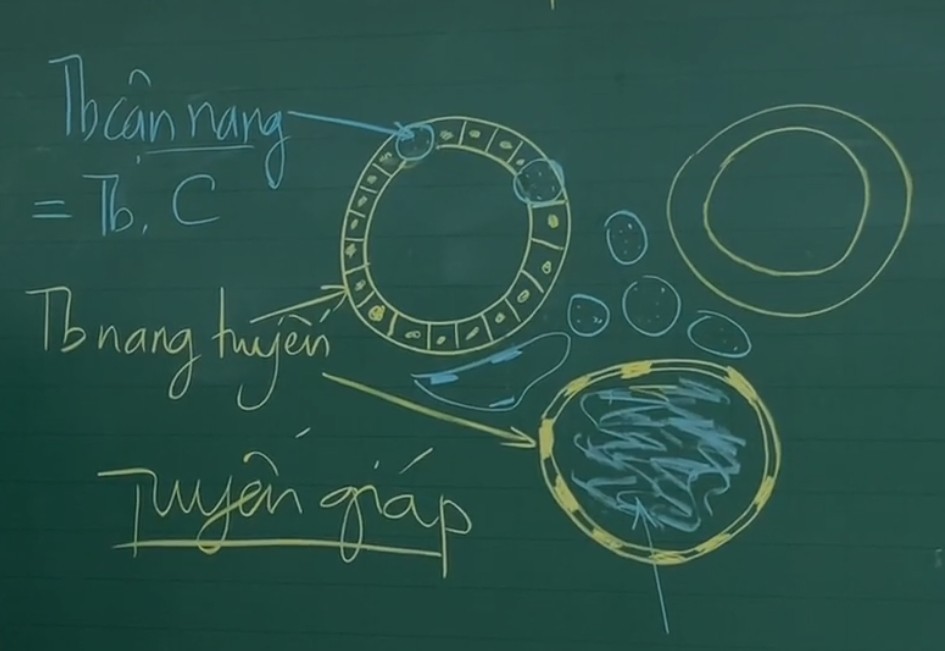 Tb cận nang
= Tb. C
Tb nang tuyến
Tuyến giáp